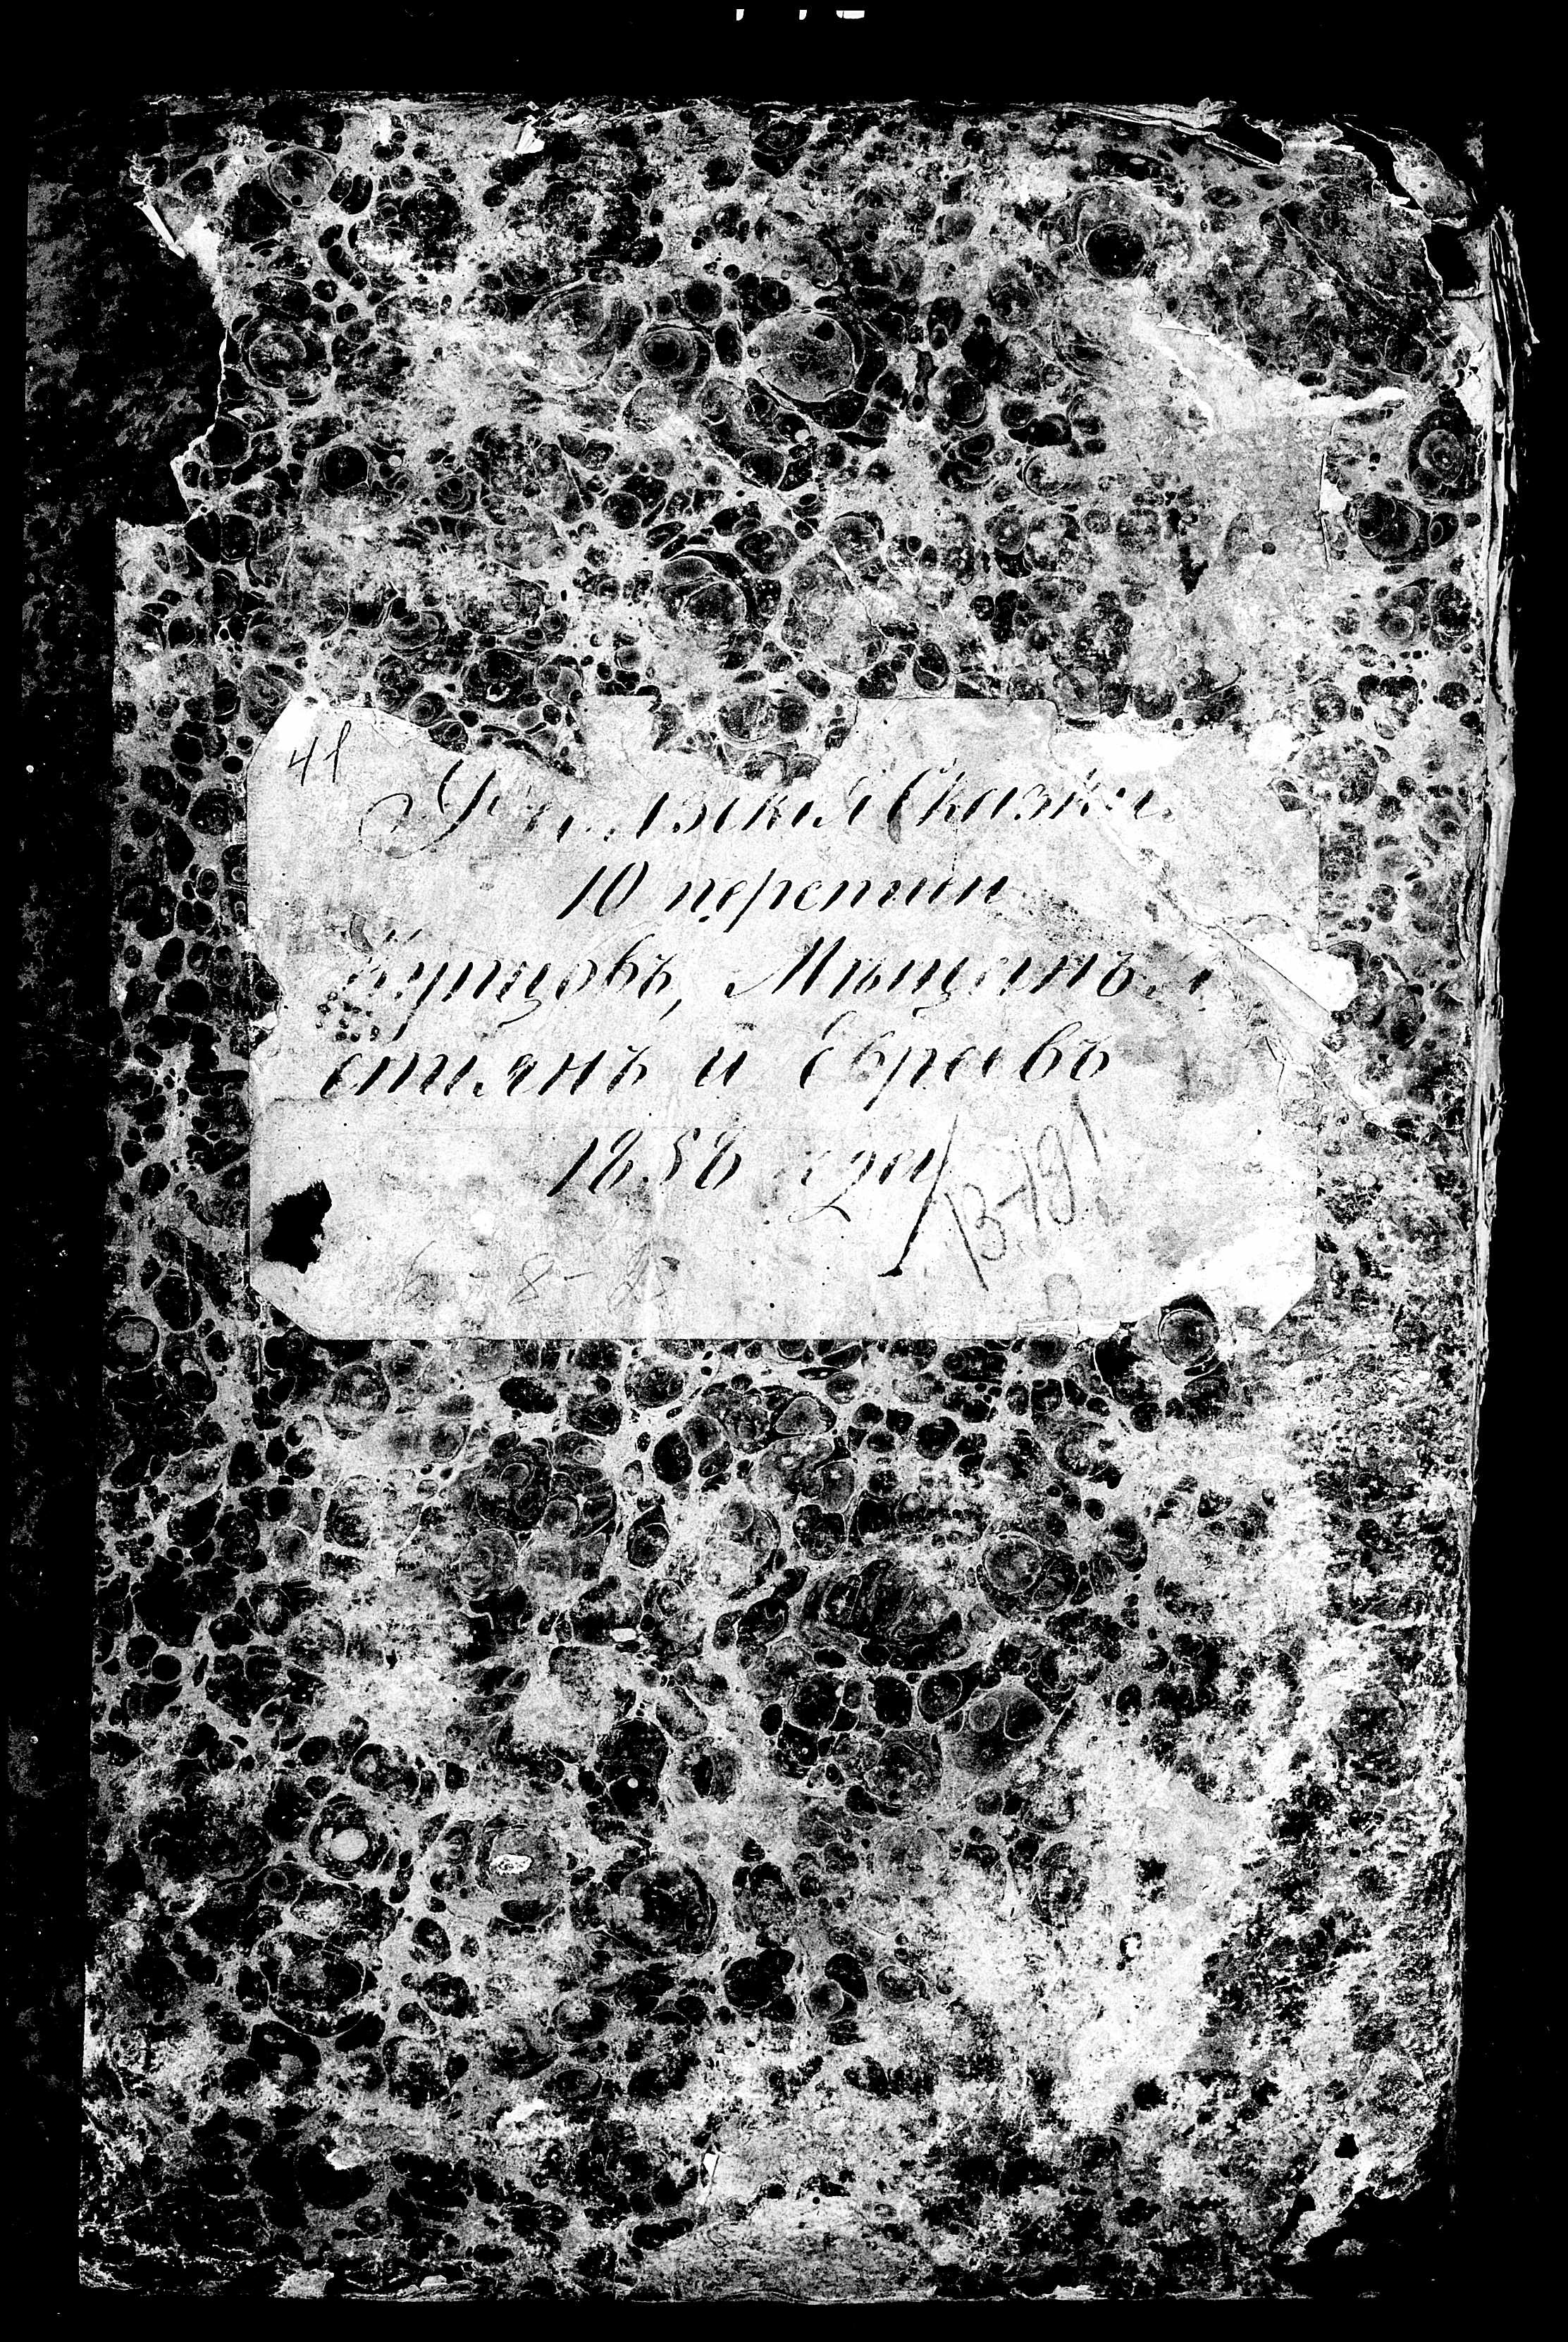 41
Сказки
10 перепии
Купцовъ, Мѣщанъ
стиянъ и Евреевъ
1858 года
13-191